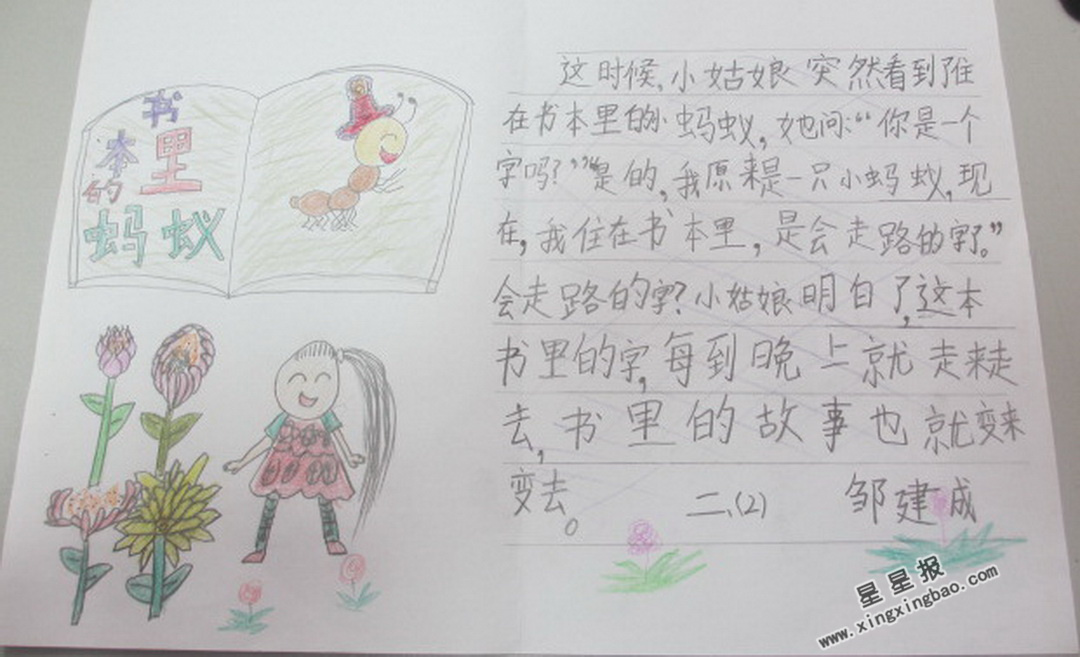 书
本里
的
蚂蚁
这时候,小姑娘突然看到住
在书本里的小蚂蚁,她问:“你是一个
字吗?”“是的,我原来是一只小蚂蚁,现
在,我住在书本里,是会走路的字了。”
会走路的字?小姑娘明白了,这本
书里的字,每到晚上就走来走
去,书里的故事也就变来
变去。 二、(2) 邹建成
星星报
www.xingxingbao.com